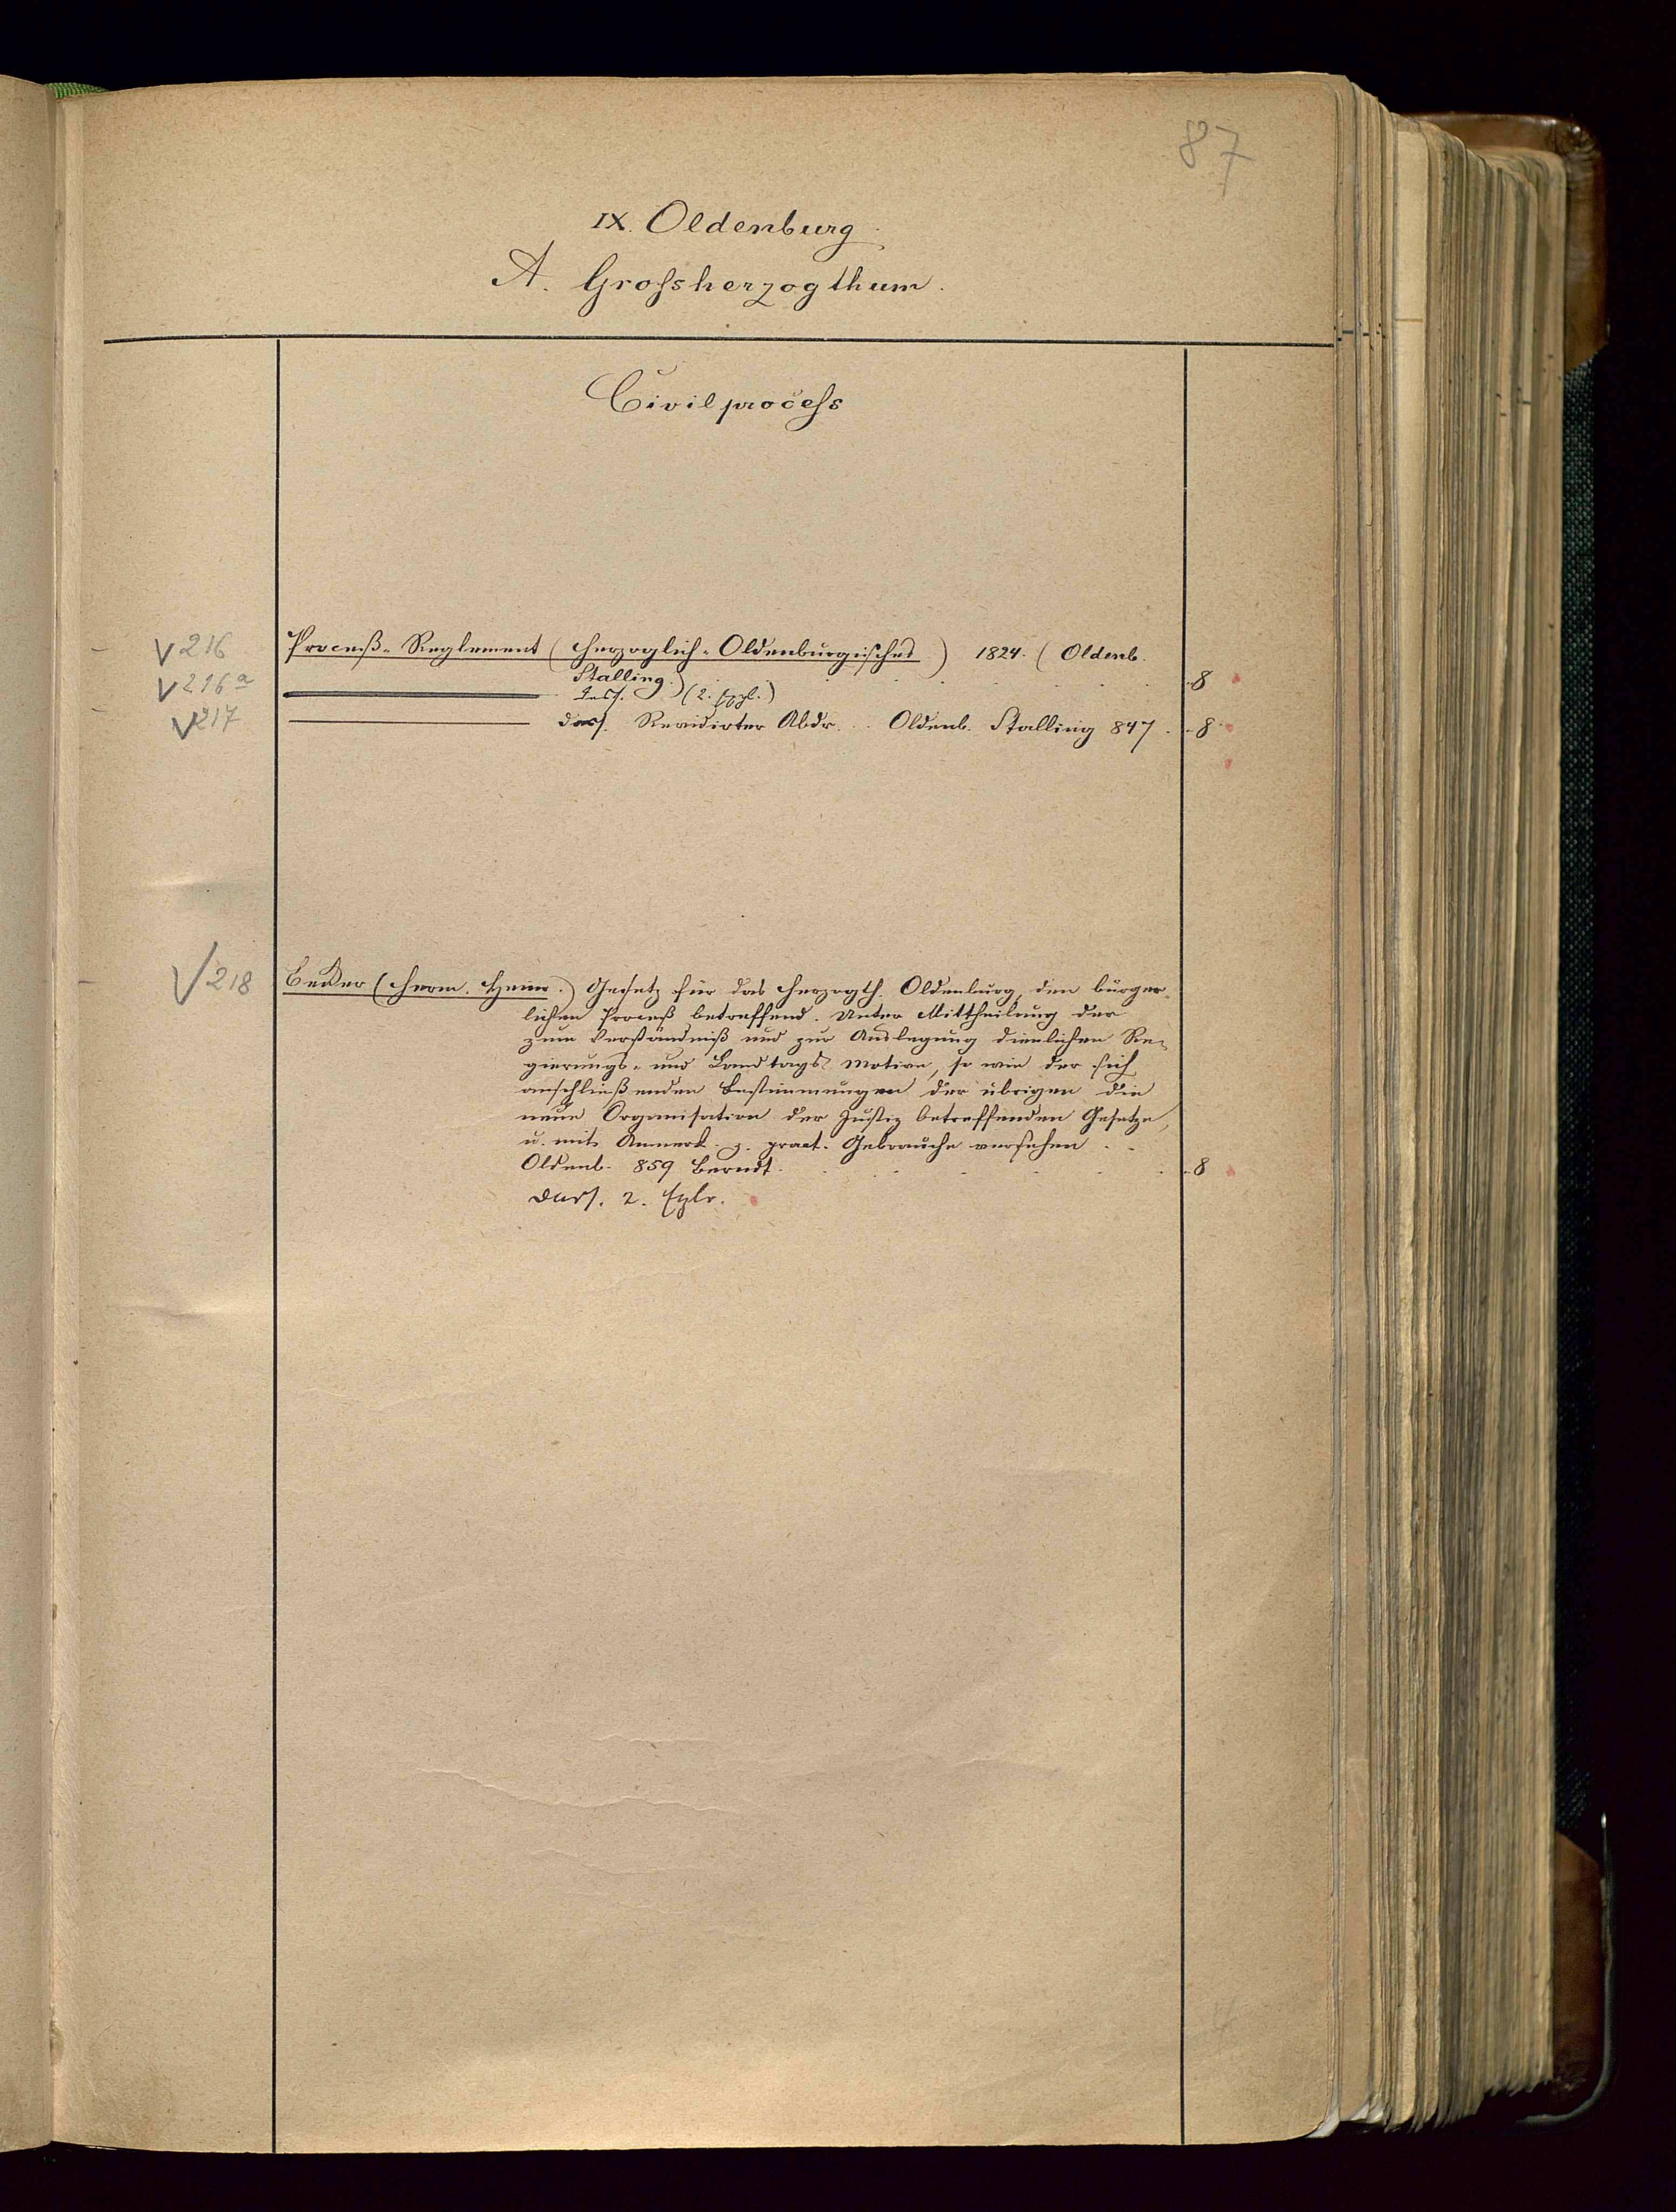 87
IX. Oldenburg
A. Grossherzogthum.
Civilprocess
V 216 Proceß-Reglement (Herzoglich-Oldenburgisches) 1824. (Oldenb.
Stalling.) 8
V 216 a Dass. (2. Expl.)
V 217 Dass. Revidirter Abdr. Oldenb. Stalling 847. 8
V 218 Becker (Herm. Heinr.) Gesetz für das Herzogth. Oldenburg, den bürger-
lichen Proceß betreffend. Unter Mittheilung der
zum Verständniß und zur Auslegung dienlichen Re-
gierungs- und Landtags Motive, so wie der sich
anschließenden Bestimmungen der übrigen die
neue Organisation der Justiz betreffenden Gesetze,
u. mit Anmerk. z. pract. Gebrauche versehen
Oldenb. 859 Berndt. 8
Dass. 2. Explr.